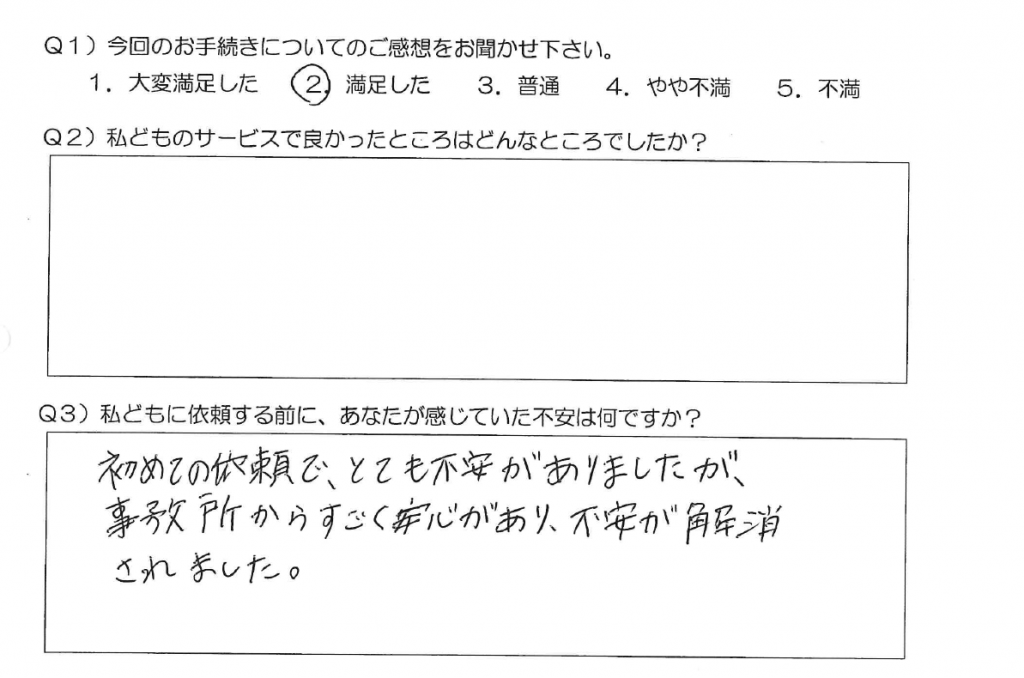 Q1）今回のお手続きについてのご感想をお聞かせ下さい。
1．大変満足した　2．満足した　3．普通　4．やや不満　5．不満
Q2）私どものサービスで良かったところはどんなところでしたか？
Q3）私どもに依頼する前に、あなたが感じていた不安は何ですか？
初めての依頼で、とても不安がありましたが、
事務所からすごく安心があり、不安が解消
されました。